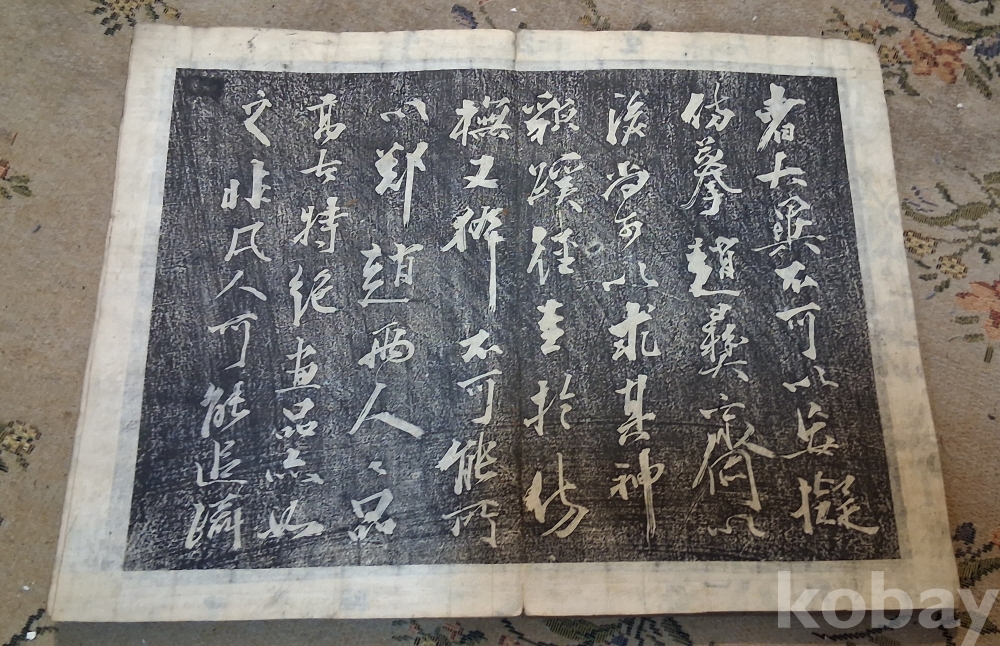 者大不可以妄擬
仿摹趙彝齋以
後尚可以求其神
貌蹊徑至於仿
橅又猝不可能所
以鄭趙兩人〻品
高古特絶畫品亦如
之非凡人可能追躡
kobay